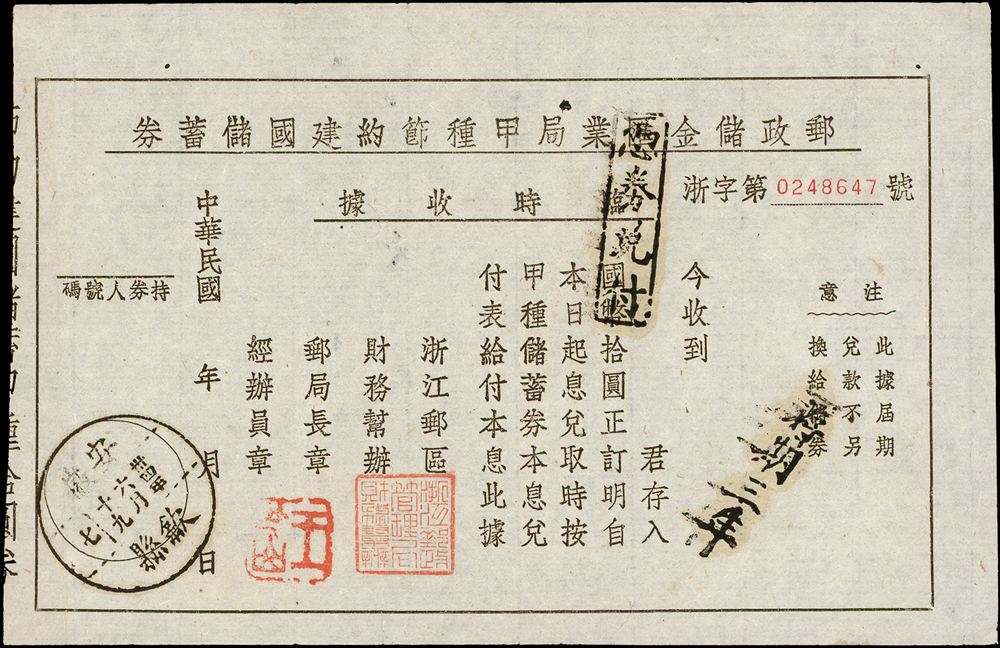 郵政儲金匯業局甲種節約建國儲蓄券
浙字第0248647號
臨時收據
憑券兌付
注意
此據屆期
兌款不另
換給券
期三年
今收到
君存入
國幣拾圓正訂明自
本日起息兌取時按
甲種儲蓄券本息兌
付表給付本息此據
浙江郵區
財務幫辦
郵局長章
經辦員章
中華民國年月日
持券人號碼
安徽
六月
十九
歙縣